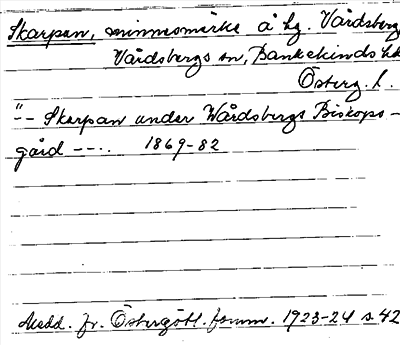 Skarpan, minnesmärke å hg. Vårdsberg
Vårdsbergs sn, Bankekinds hd
Österg. l.
"-- Skarpan under Wårdsbergs Biskops-
gård --.. 1869-82
Medd. fr. Östergötl. fornm. 1923-24 s. 42